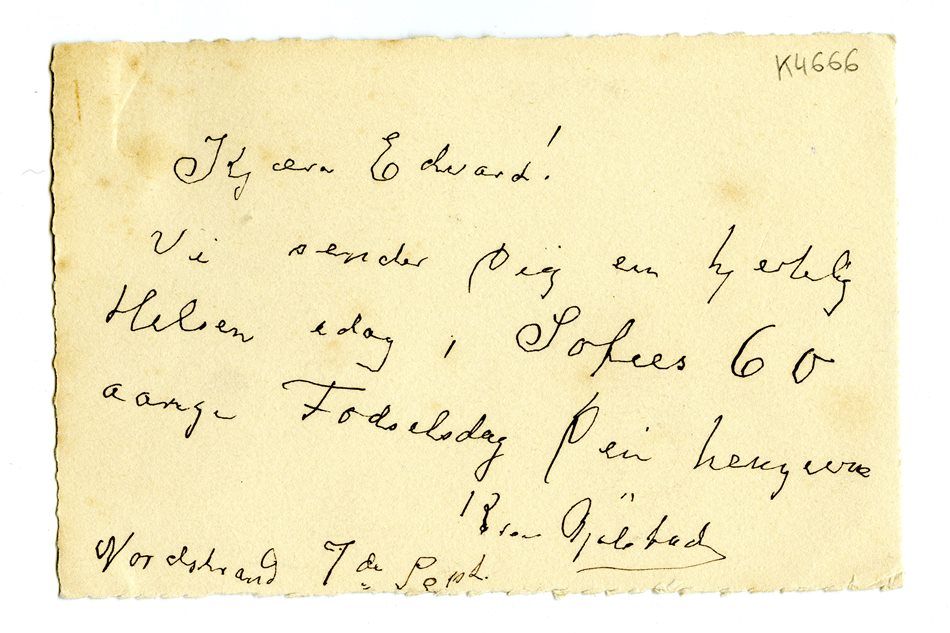 K4666
Kjære Edvard!
Vi sender Dig en hjertelig
Helsen idag, Sofies 60
aarige Fødselsdag Din hengivne
Nordstrand 7de Sept.